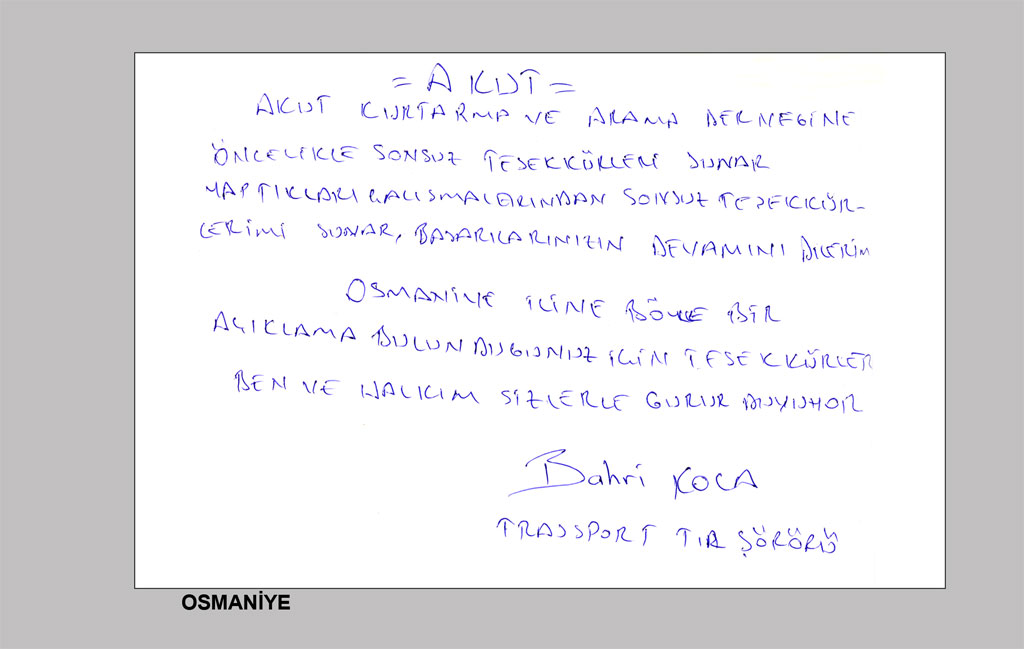 = AKUT =
AKUT KURTARMA VE ARAMA DERNEGİNE
ÖNCELİKLE SONSUZ TESEKKÜRLERİ SUNAR
YAPTIKLARI ÇALISMALARINDAN SONSUZ TESEKKÜR-
LERİMİ SUNAR, BASARILARINIZIN DEVAMINI DİLERİM
OSMANİYE İLİNE BÖYLE BİR
AÇIKLAMA BULUNDUGUNUZ İÇİN TESEKKÜRLER
BEN VE HALKIM SİZLERLE GURUR DUYUYOR
Bahri KOCA
TRASSPORT TIR ŞÖRÖRÜ
OSMANİYE